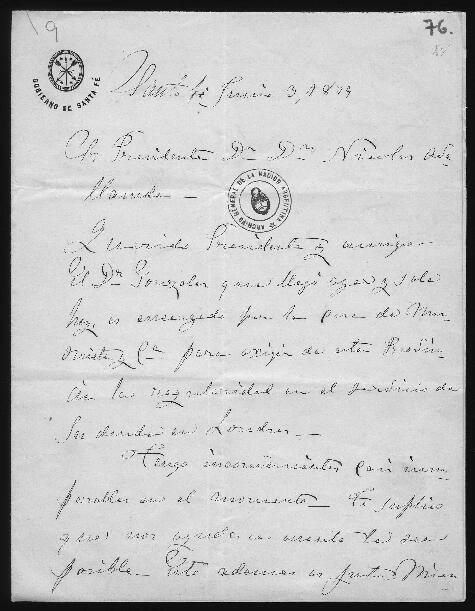 19
76.
GOBIERNO DE SANTA FÉ
Santa Fé Junio 3, 1879
Sr Presidente Dr Dn Nicolas Ave
llaneda —
ARCHIVO GENERAL DE LA NACION ARGENTINA
Querido Presidente y amigo —
El Dr Gonzalez que llegó ayer y sale
hoy, es encargado por la casa de Mur
rieta y Ca para exijir de esta Provin
cia la regularidad en el servicio de
su deuda en Londres. —
Tengo inconvenientes casi insu
perables en el momento — Le suplico
que nos ayude en cuanto le sea
posible — Esto ademas es